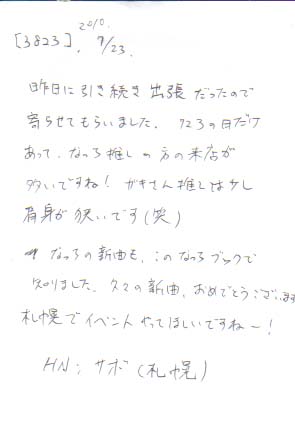 2010.
[3823]. 7/23.
昨日に引き続き出張だったので
寄らせてもらいました. 723の日だけ
あって、なっち推しの方の来店が
多いですね! ガキさん推しは少し
肩身が狭いです(笑)
なっちの新曲も、このなっちブックで
知りました. 久々の新曲、おめでとうございます
札幌でイベントやってほしいですねー!
HN; サボ(札幌)